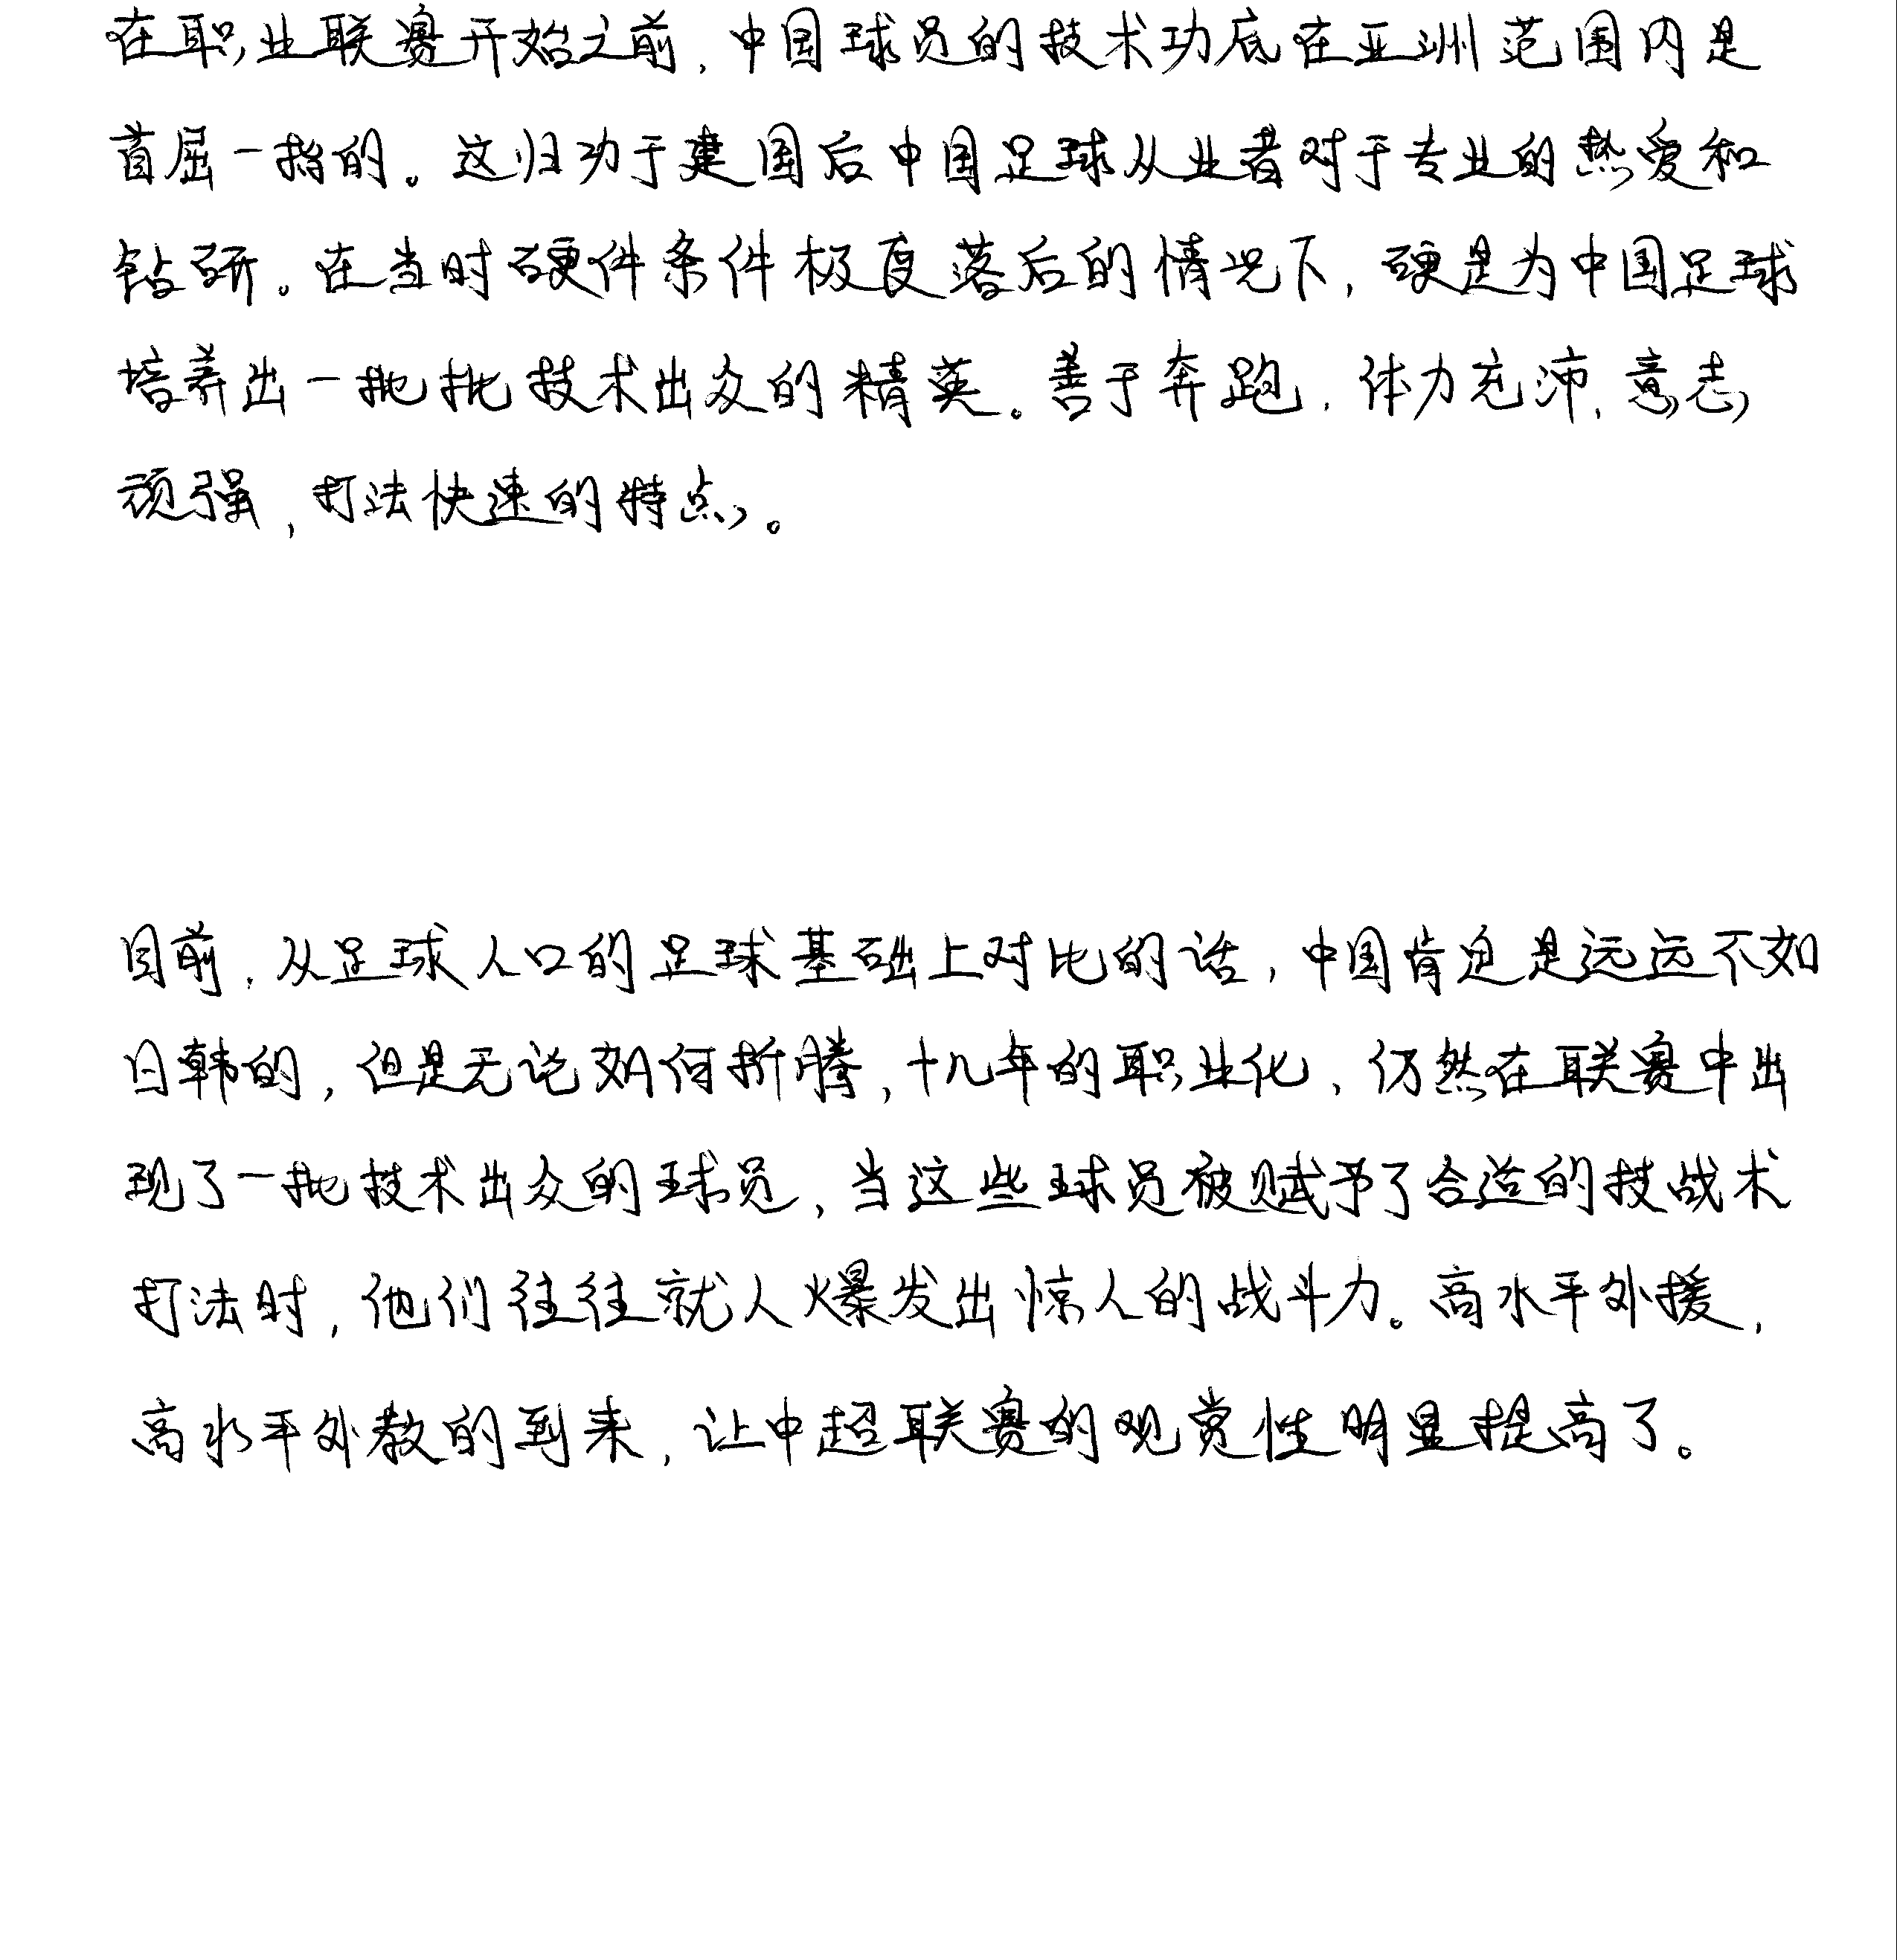 在职业联赛开始之前，中国球员的技术功底在亚洲范围内是
首屈一指的。这归功于建国后中国足球从业者对于专业的热爱和
钻研。在当时硬件条件极度落后的情况下，硬是为中国足球
培养出一批批技术出众的精英。善于奔跑，体力充沛，意志
顽强，打法快速的特点。
目前，从足球人口的足球基础上对比的话，中国肯定是远远不如
日韩的，但是无论如何折腾，十几年的职业化，仍然在联赛中出
现了一批技术出众的球员，当这些球员被赋予了合适的技战术
打法时，他们往往就人爆发出惊人的战斗力。高水平外援，
高水平外教的到来，让中超联赛的观赏性明显提高了。